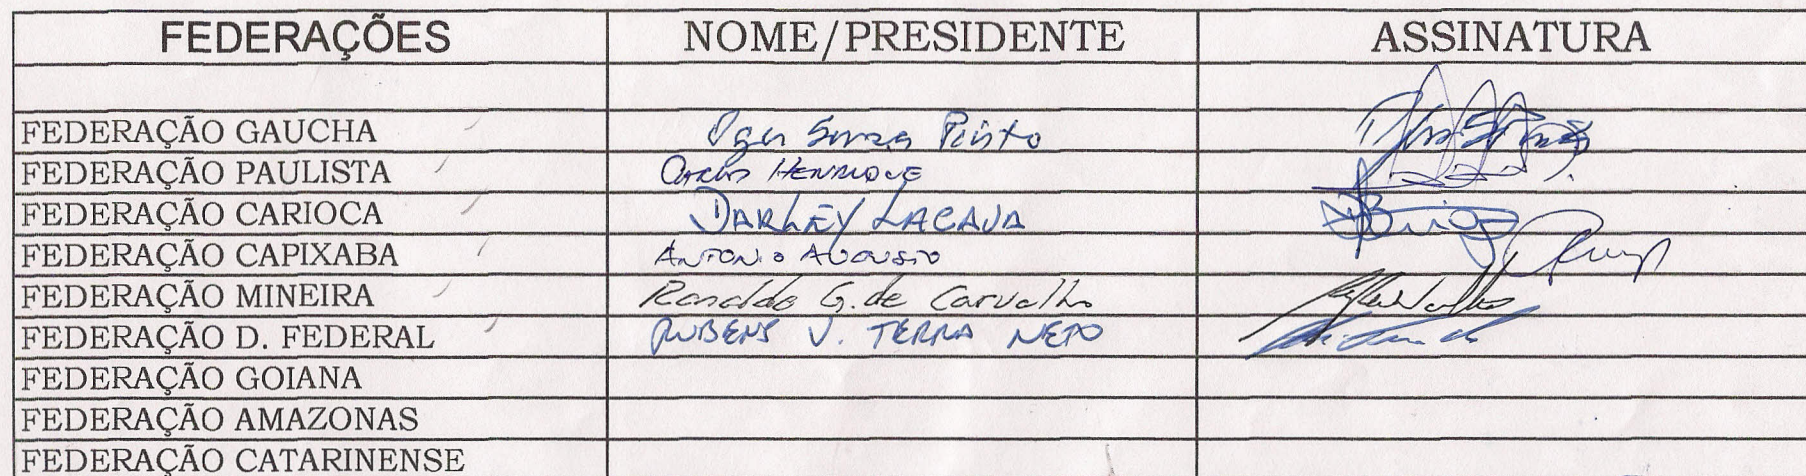 FEDERAÇÕES NOME/PRESIDENTE ASSINATURA
FEDERAÇÃO GAUCHA Souza Pinto
FEDERAÇÃO PAULISTA Carlos HENRIQUE
FEDERAÇÃO CARIOCA DARLEY LACAVA
FEDERAÇÃO CAPIXABA ANTONIO AUGUSTO
FEDERAÇÃO MINEIRA Ronaldo G. de Carvalho
FEDERAÇÃO D. FEDERAL RUBENS V. TERRA NETO
FEDERAÇÃO GOIANA
FEDERAÇÃO AMAZONAS
FEDERAÇÃO CATARINENSE